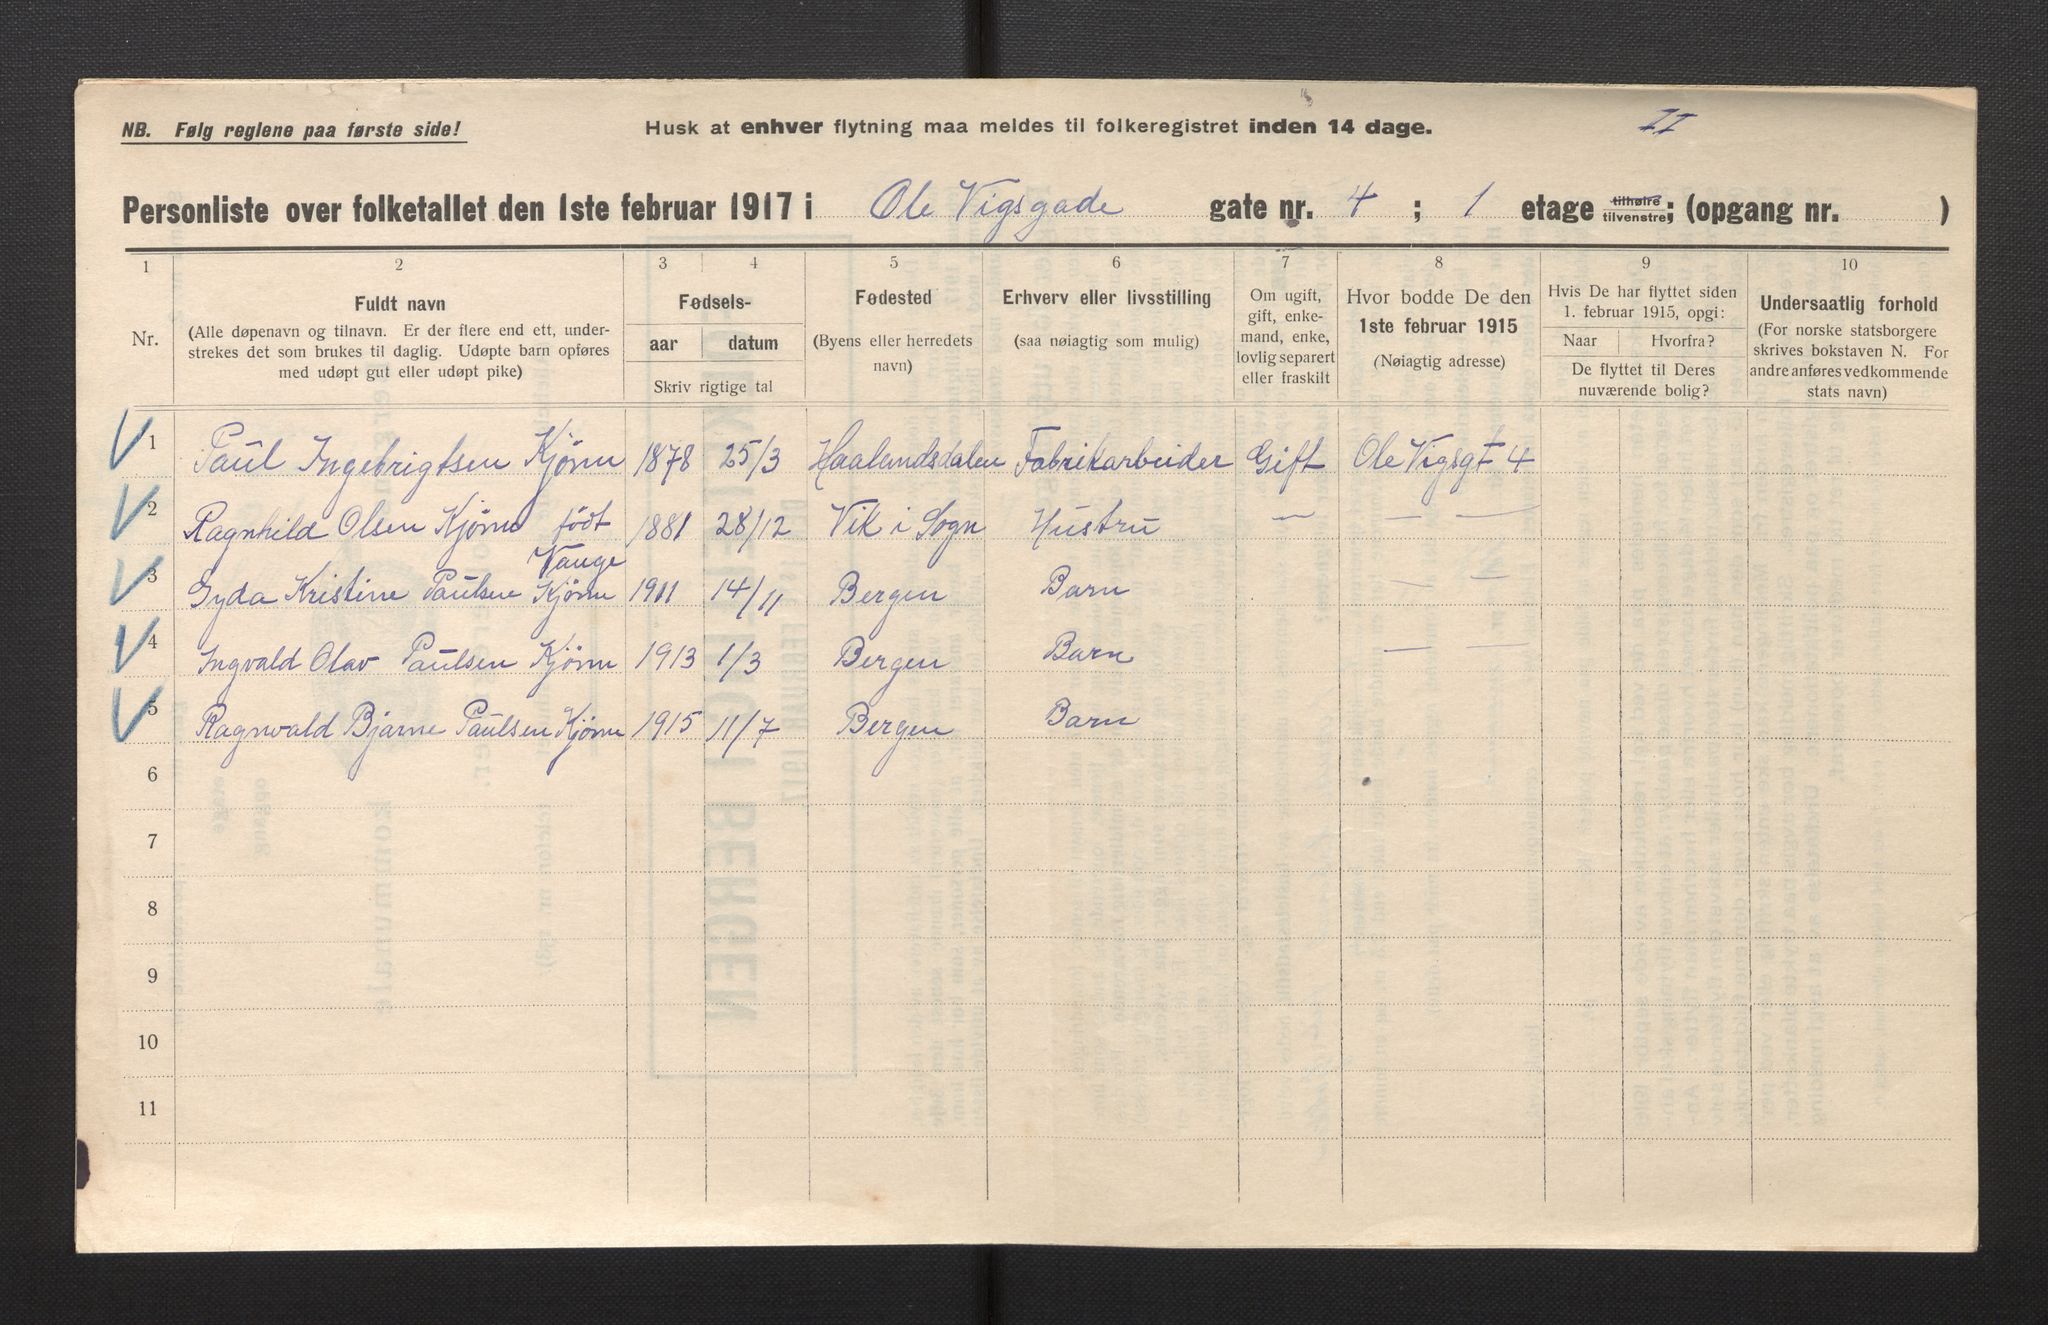 NB. Følg reglene paa første side!
Husk at enhver flytning maa meldes til folkeregistret inden 14 dage.
II
Personliste over folketallet den 1ste februar 1917 i Ole Vigsgade gate nr. 4 ; 1 etage tilhøire tilvenstre; (opgang nr. )
1 2 3 4 5 6 7 8 9 10
Nr.
Fuldt navn
(Alle døpenavn og tilnavn. Er der flere end ett, under-
strekes det som brukes til daglig. Udøpte barn opføres
med udøpt gut eller udøpt pike)
Fødsels-
aar datum
Skriv rigtige tal
Fødested
(Byens eller herredets
navn)
Erhverv eller livsstilling
(saa nøiagtig som mulig)
Om ugift,
gift, enke-
mand, enke,
lovlig separert
eller fraskilt
Hvor bodde De den
1ste februar 1915
(Nøiagtig adresse)
Hvis De har flyttet siden
1. februar 1915, opgi:
Naar Hvorfra?
De flyttet til Deres
nuværende bolig?
Undersaatlig forhold
(For norske statsborgere
skrives bokstaven N. For
andre anføres vedkommende
stats navn)
1 Paul Ingebrigtsen Kjönn 1878 25/3 Haalandsdalen Fabrikarbeider Gift Ole Vigsgt 4
2 Ragnhild Olsen Kjönn födt 1881 28/12 Vik i Sogn Hustru — — —
Vange
3 Gyda Kristine Paulsen Kjönn 1911 14/11 Bergen Barn — —
4 Ingvald Olav Paulsen Kjönn 1913 1/3 Bergen Barn — —
5 Ragnvald Bjarne Paulsen Kjönn 1915 11/7 Bergen Barn
6
7
8
9
10
11